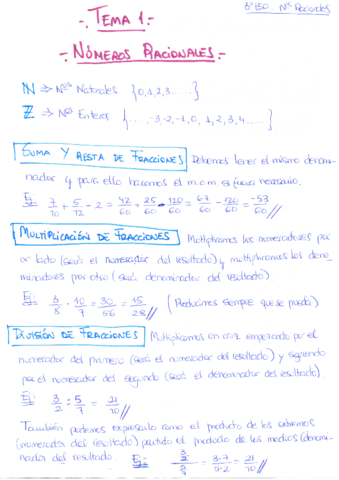 3º ESO. Nos Racionales
-. TEMA 1 .-
-. NÚMEROS RACIONALES .-
ℕ → Nos Naturales {0,1,2,3.....}
ℤ → Nos Enteros {....,-3,-2,-1,0,1,2,3,4.....}
SUMA Y RESTA DE FRACCIONES Debemos tener el mismo denomi-
nador y para ello hacemos el m.c.m. si fuera necesario.
Ej: 7/10 + 5/12 - 2 = 42/60 + 25/60 - 120/60 = 67/60 - 120/60 = -53/60 //
MULTIPLICACIÓN DE FRACCIONES Multiplicamos los numeradores por
un lado (será el numerador del resultado) y multiplicamos los deno-
minadores por otro (será denominador del resultado).
Ej: 3/8 · 10/7 = 30/56 = 15/28 // (Reducimos siempre que se pueda)
DIVISIÓN DE FRACCIONES Multiplicamos en cruz empezando por el
numerador del primero (será el numerador del resultado) y siguiendo
por el numerador del segundo (será el denominador del resultado).
Ej: 3/2 : 5/7 = 21/10 //
También podemos expresarlo como el producto de los extremos
(numerador del resultado) partido el producto de los medios (denomi-
nador del resultado. Ej: = 3·7/5·2 = 21/10 //